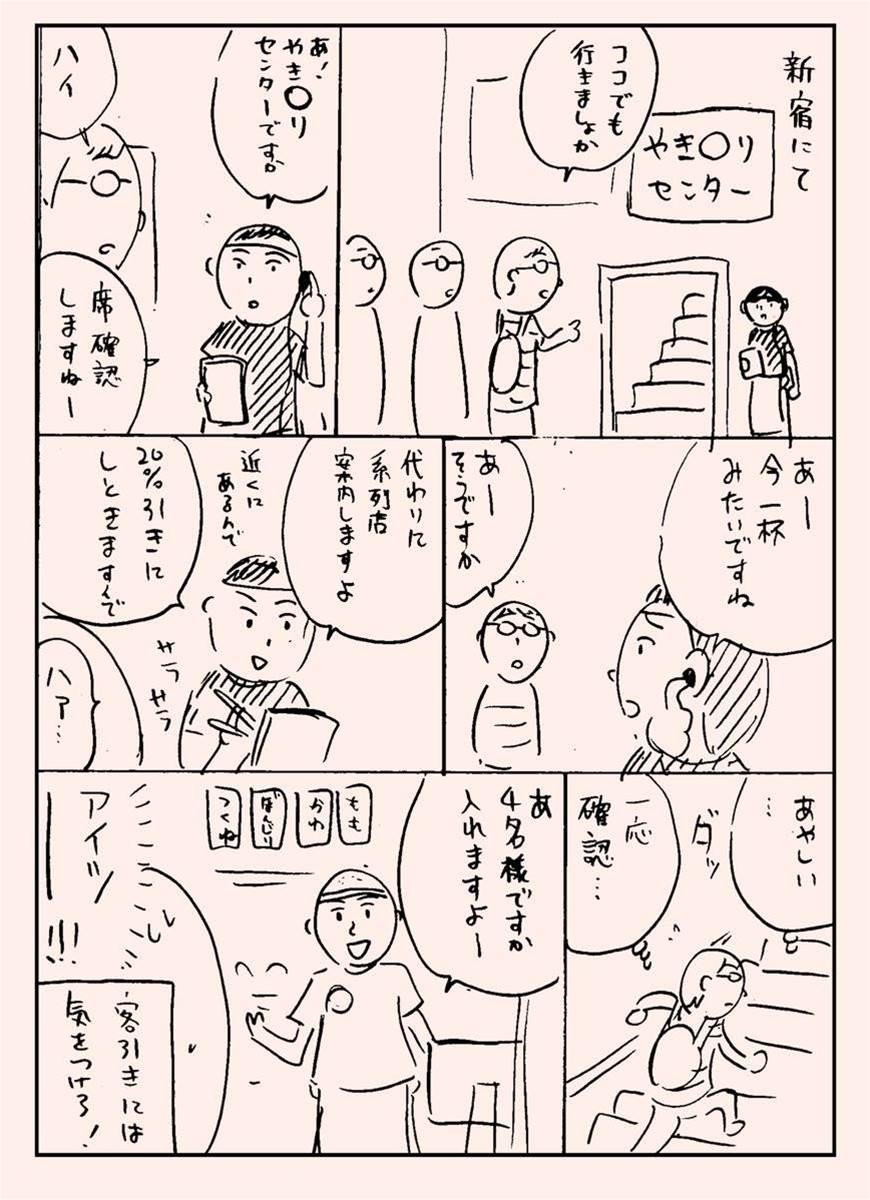 新宿にて
やき〇り
センター
ココでも
行きましょか
あ！
やき〇り
センターですか
ハイ
席確認
しますねー
あー
今一杯
みたいですね
あー
そうですか
代わりに
系列店
案内しますよ
近くに
あるんで
20%引きに
しときますんで
サラサラ
ハア…
あやしい
…
ダッ
一応
確認…
あ
4名様ですか
入れますよー
もも
かわ
ぼんじり
つくね
アイツ
ー!!!
客引きには
気をつけろ！